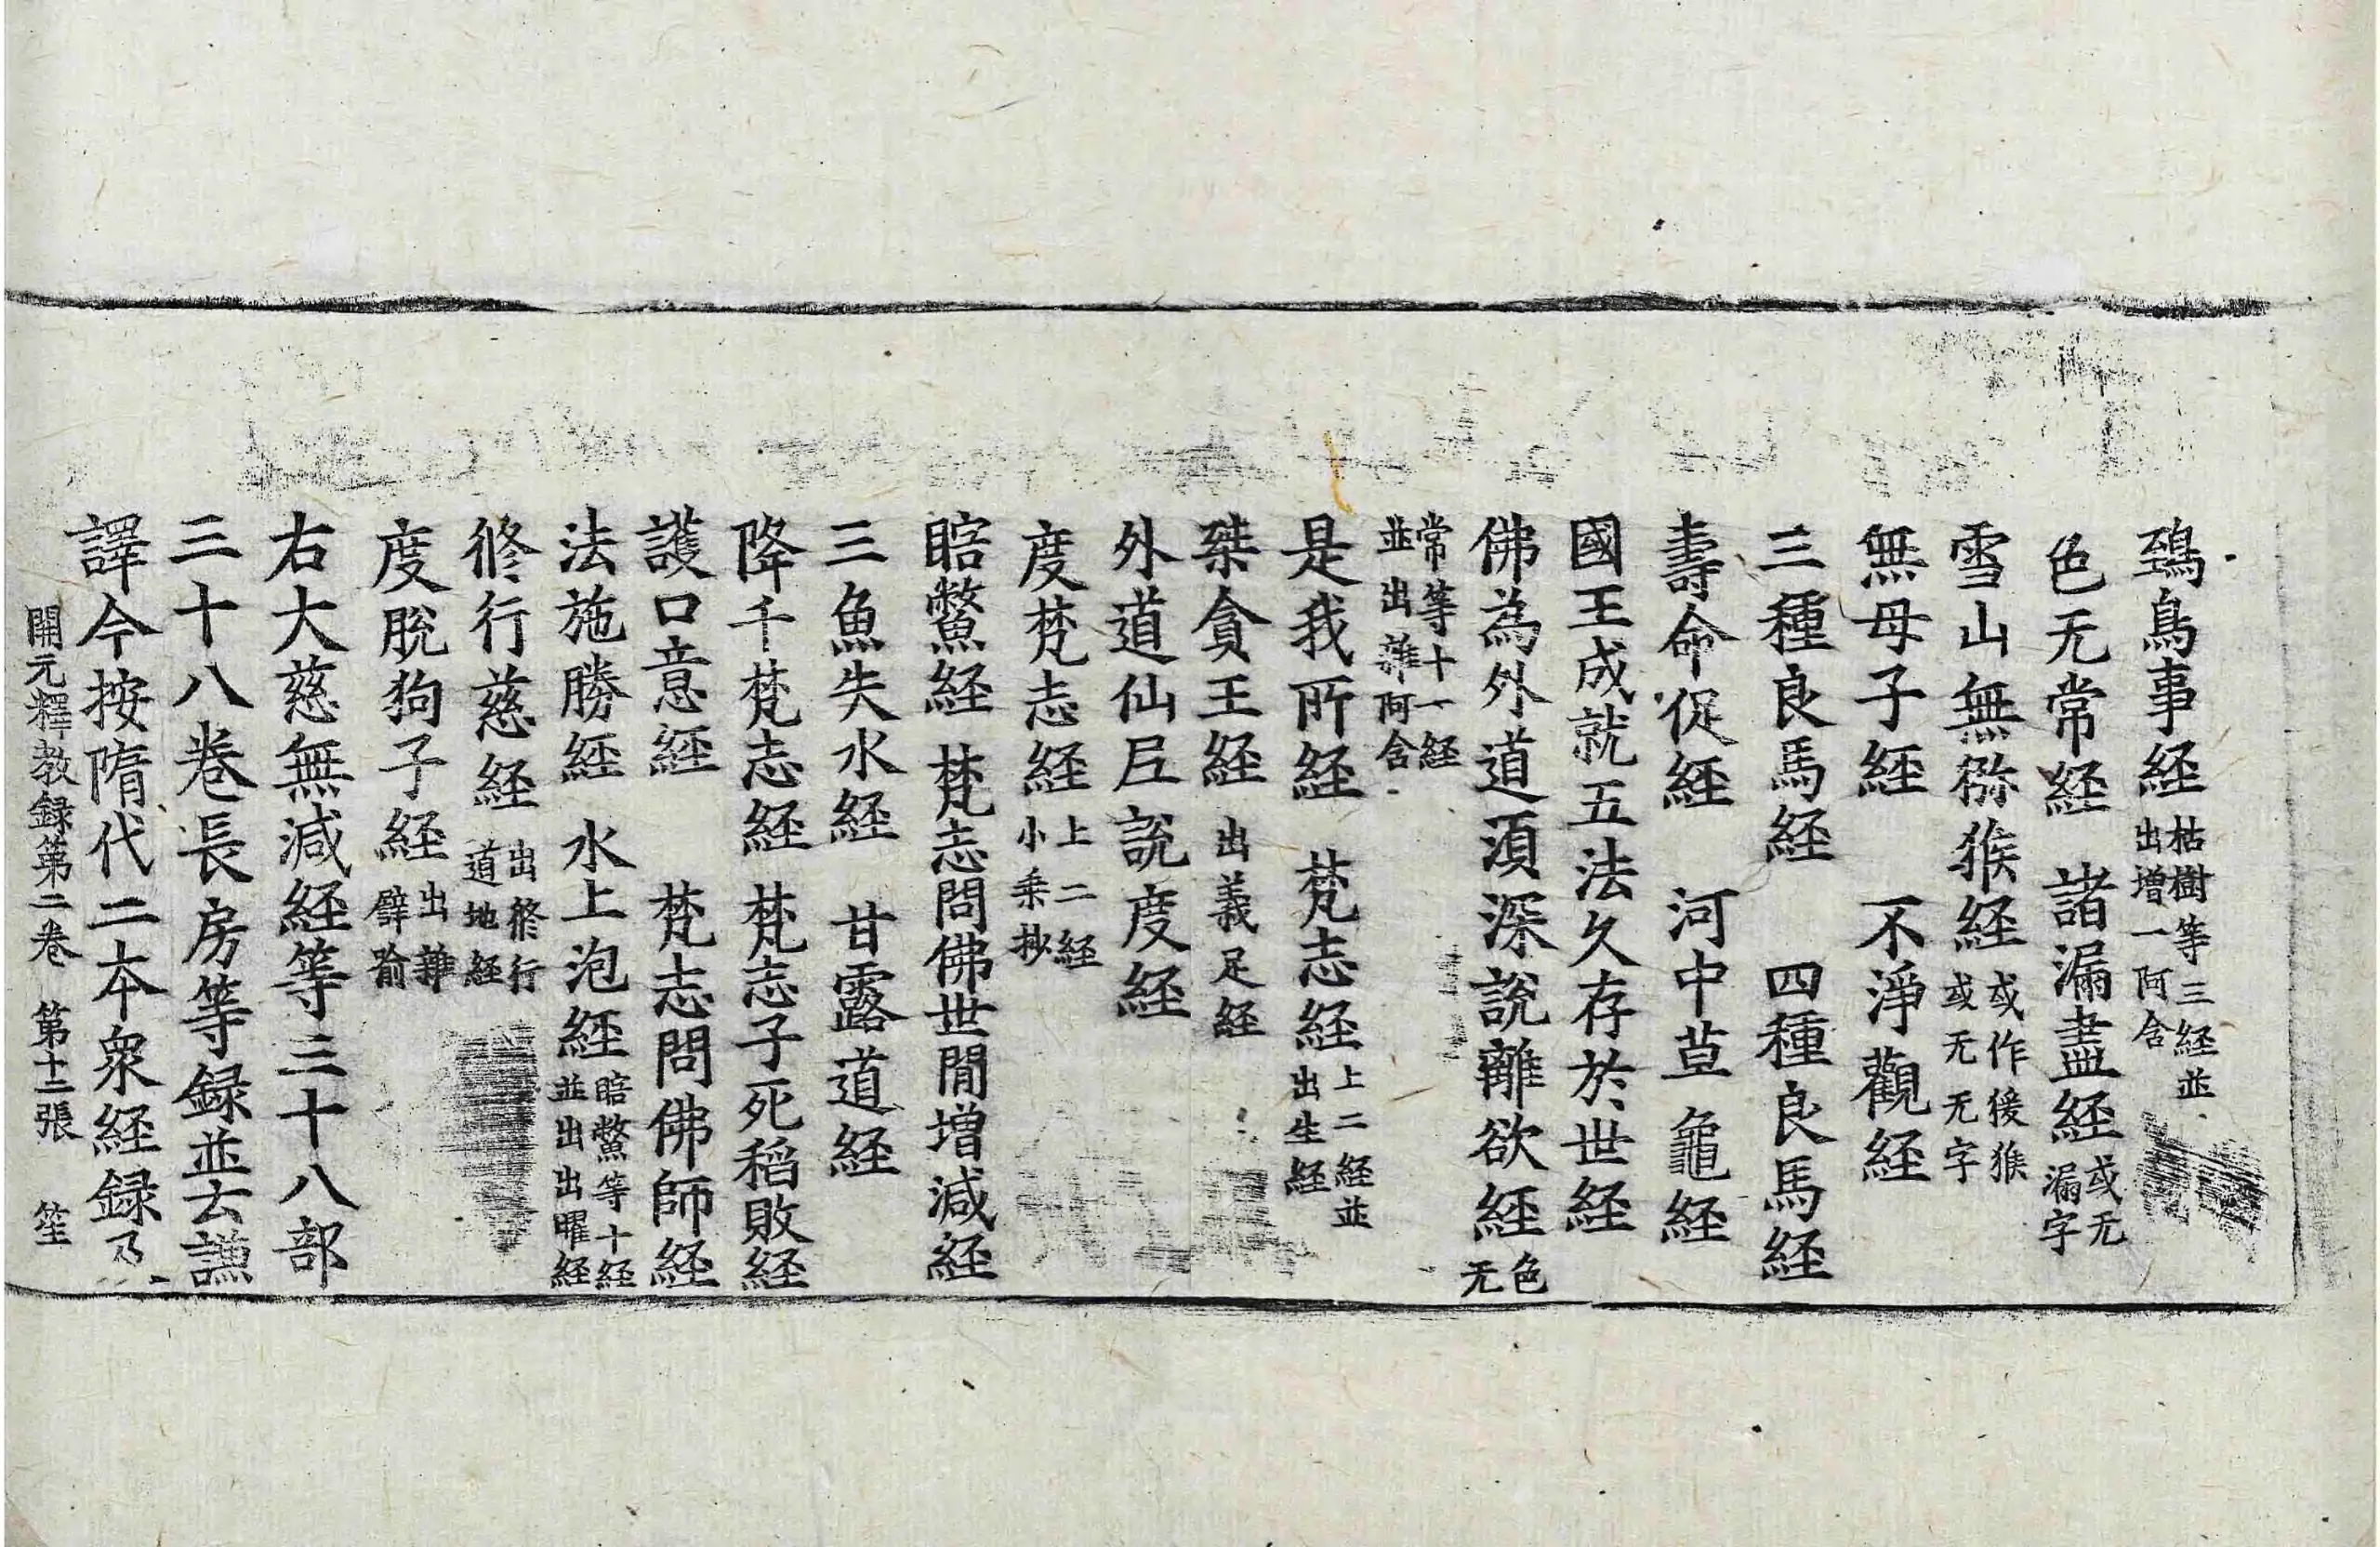 鵄鳥事経枯樹等三経並出增一阿含
色无常経 諸漏盡経或无漏字
雪山無獼猴経或作獶猴或无无字
無母子経 不淨觀経
三種良馬経 四種良馬経
壽命促経 河中草龜経
國王成就五法久存於世経
佛為外道湏深說離欲経色无
常等十一経並出雜阿含
是我所経 梵志経上二経並出生経
桀貪王経出義足経
外道仙𡰱說度経
度梵志経上二経小乘抄
䁆鱉経 梵志問佛世間增減経
三魚失水経 甘露道経
降千梵志経 梵志子死稻敗経
護口意経 梵志問佛師経
法施勝経 水上泡経䁆鱉等十経並出出曜経
修行慈経出修行道地経
度脫狗子経出雜譬喻
右大慈無減経等三十八部
三十八卷長房等録並云謙
譯今按隋代二本衆経録乃
開元釋教録第二卷 第十二張 笙